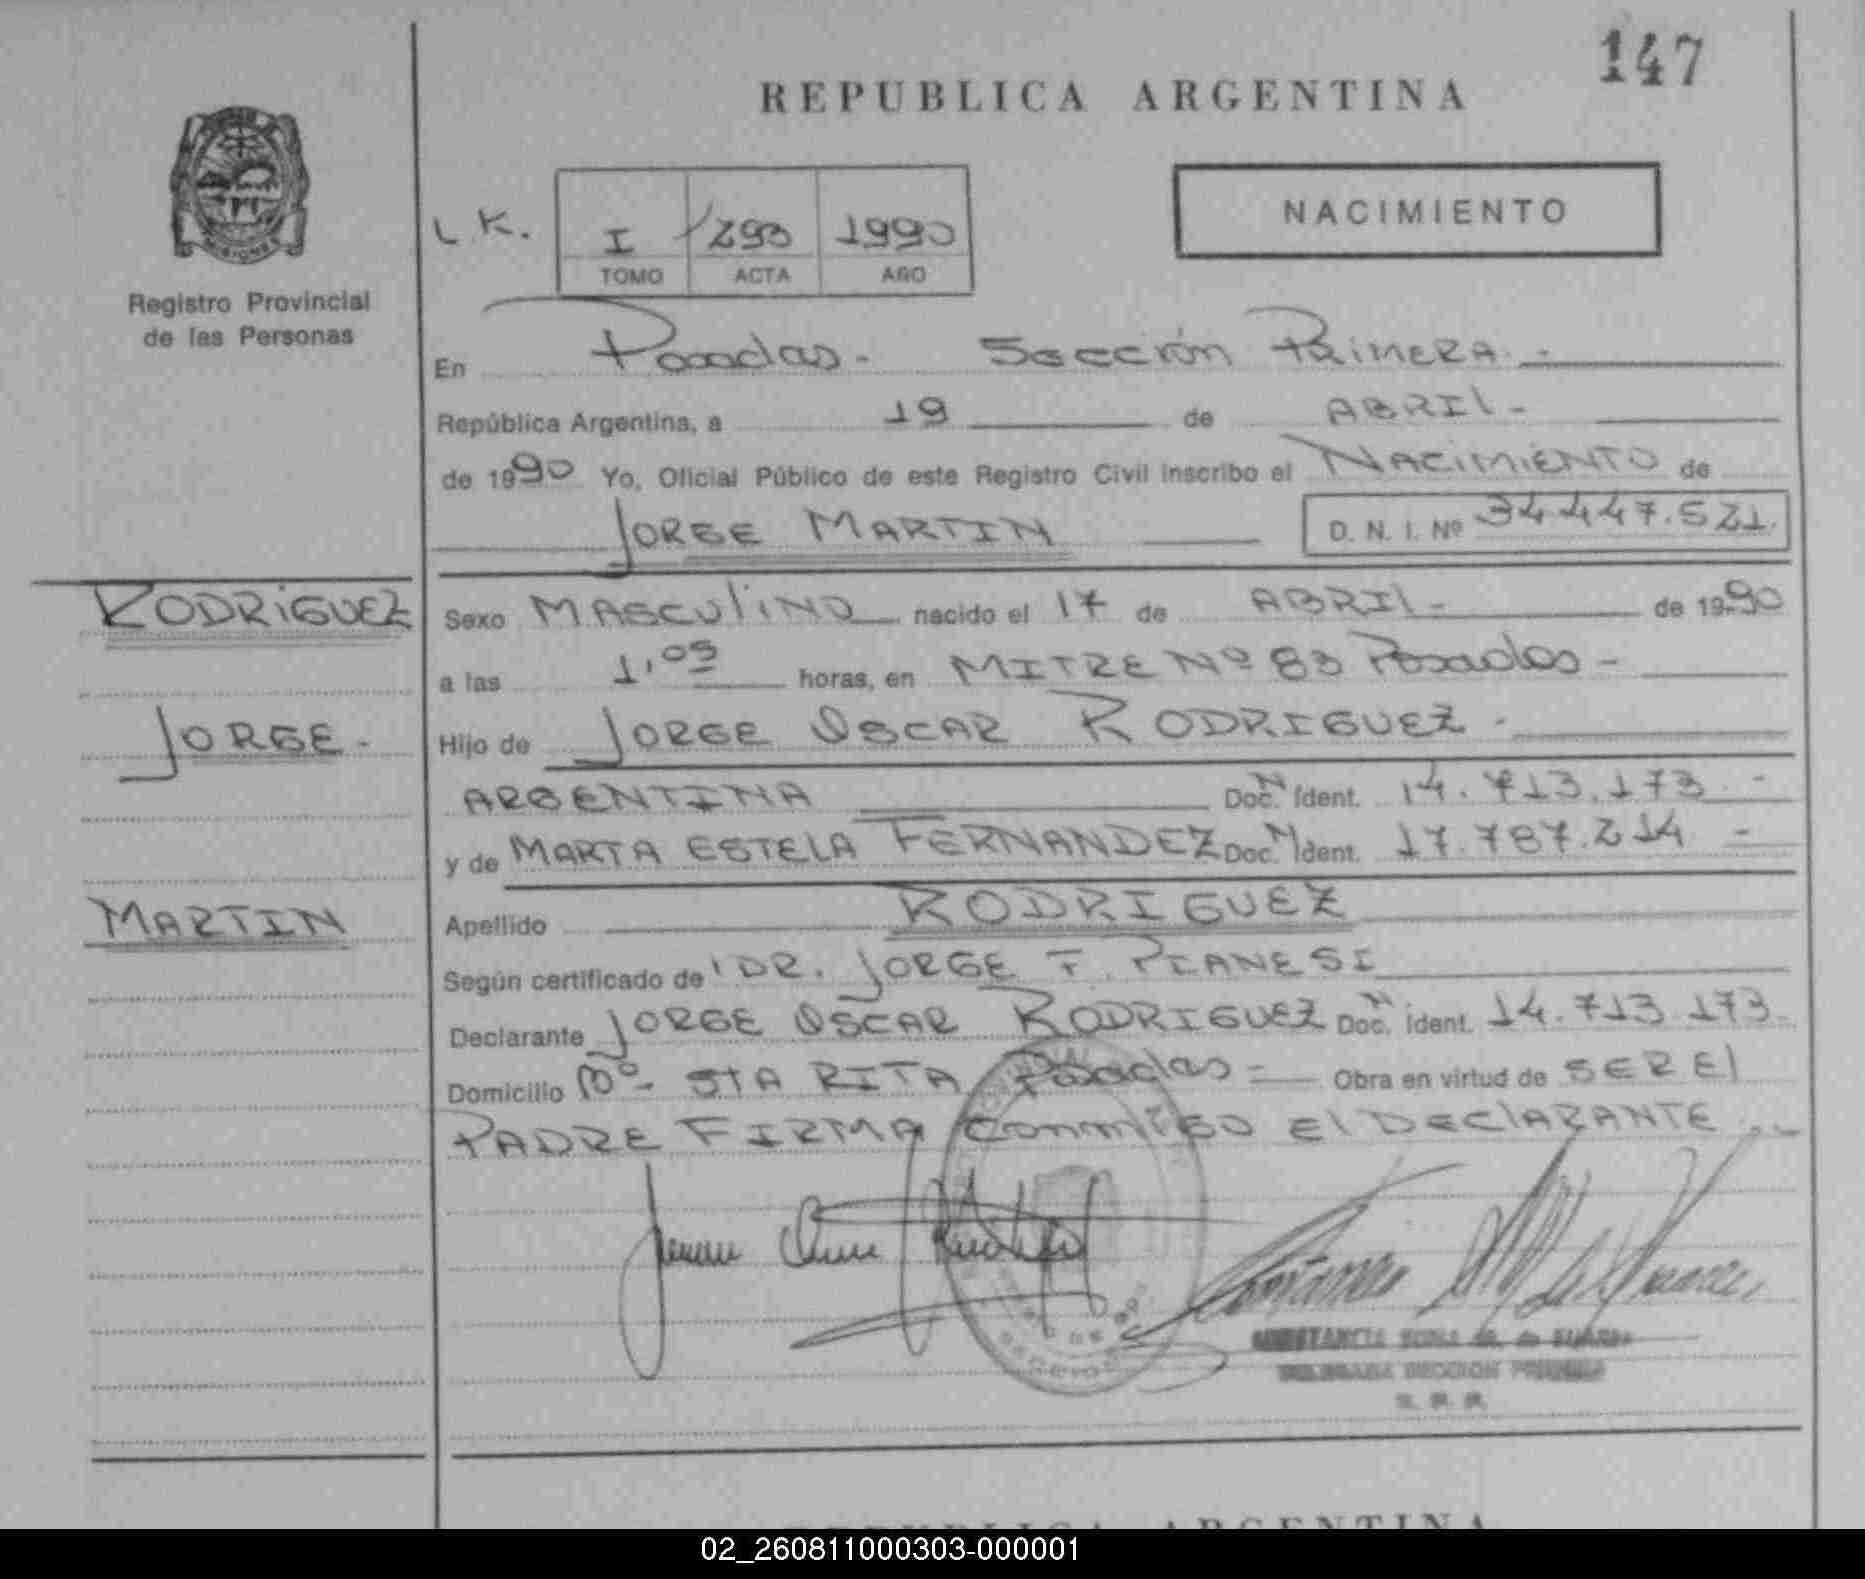 147
REPUBLICA ARGENTINA
L.K.
I 293 1990
TOMO ACTA AÑO
NACIMIENTO
MISIONES
Registro Provincial
de las Personas
En Posadas - Sección Primera -
República Argentina, a 19 de ABRIL -
de 1990 Yo, Oficial Público de este Registro Civil inscribo el NACIMIENTO de
JORGE MARTIN D. N. I. Nº 34.447.521.
RODRIGUEZ
JORGE -
MARTIN
Sexo MASCULINO nacido el 17 de ABRIL - de 1990
a las 1,05 horas, en MITRE Nº 83 Posadas -
Hijo de JORGE OSCAR RODRIGUEZ -
ARGENTINA Doc. N Ident. 14.713.173 -
y de MARTA ESTELA FERNANDEZ Doc. N Ident. 17.787.214 -
Apellido RODRIGUEZ
Según certificado de DR. JORGE F. PIANESI
Declarante JORGE OSCAR RODRIGUEZ Doc. N Ident. 14.713.173
Domicilio Bº STA RITA Posadas - Obra en virtud de SER El
PADRE FIRMA CONMIGO El DEClARANTE
SECCION
REPUBLICA ARGENTINA
02_260811000303-000001